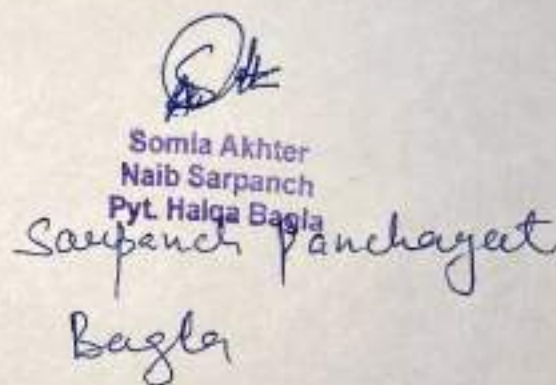 Somia Akhter
Naib Sarpanch
Pyt. Halqa Bagla
Sarpanch Panchayeet
Bagla